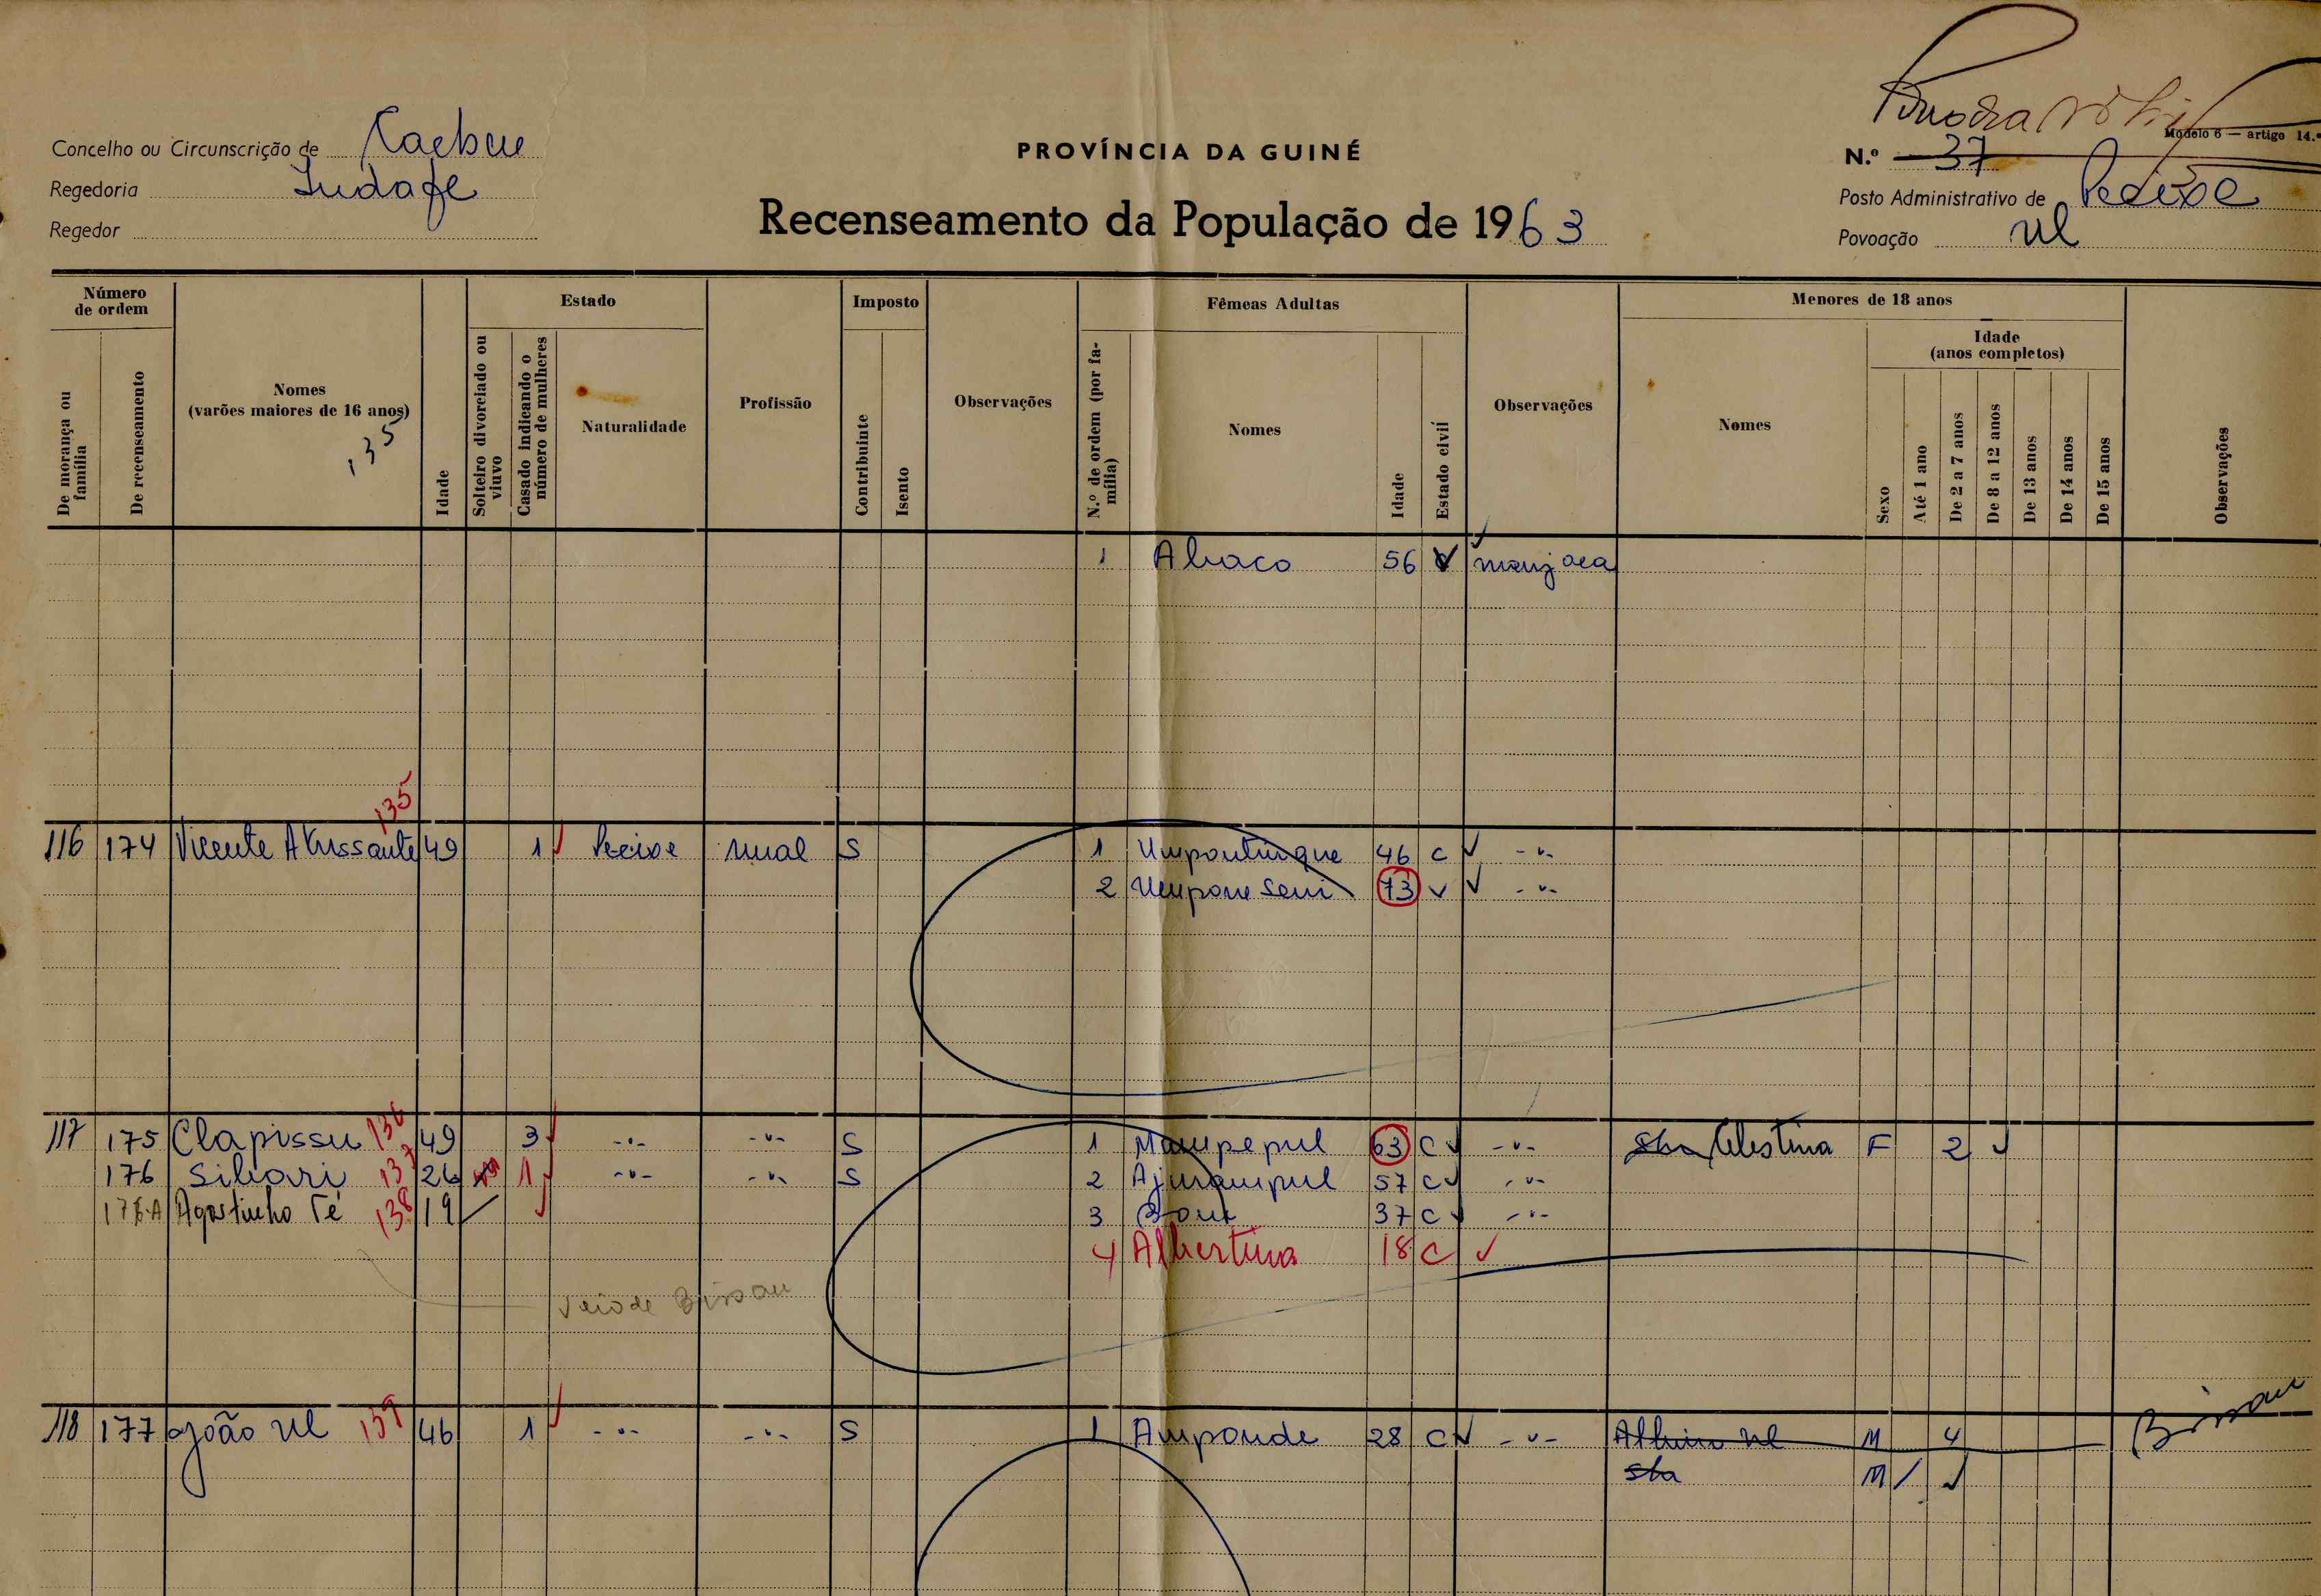 Modelo 6 — artigo 14.º
Concelho ou Circunscrição de Cacheu
PROVÍNCIA DA GUINÉ
N.º 37
Regedoria
Posto Administrativo de Pecixe
Recenseamento da População de 1963
Regedor
Povoação Ul
Número de ordem
Estado
Imposto
Fêmeas Adultas
Menores de 18 anos
Idade (anos completos)
De morança ou família
De recenseamento
Nomes (varões maiores de 16 anos)
135
Idade
Solteiro divorciado ou viuvo
Casado indicando o número de mulheres
Naturalidade
Profissão
Contribuinte
Isento
Observações
N.º de ordem (por família)
Nomes
Idade
Estado civil
Observações
Nomes
Sexo
Até 1 ano
De 2 a 7 anos
De 8 a 12 anos
De 13 anos
De 14 anos
De 15 anos
Observações
1 Abaco 56 manjaca
135
116 174 Vicente 49 1 Pecixe S 1 Umpontinque 46 c -"-
2 Umpone Seni 73 v -"-
117 175 Clapissu 136 49 3 -"- -"- S 1 Mampepul 63 C -"- Sba Celestina F 2
176 Sibari 137 26 1 -"- -"- S 2 Ajurampul 57 C -"-
176-A Agostinho Té 138 19 3 37 C -"-
4 Albertina 18 C
Veio de Bissau
118 177 João Ul 139 46 1 -"- -"- S 1 Amponde 28 C -"- Albino Ul M 4 Bissau
Sba M